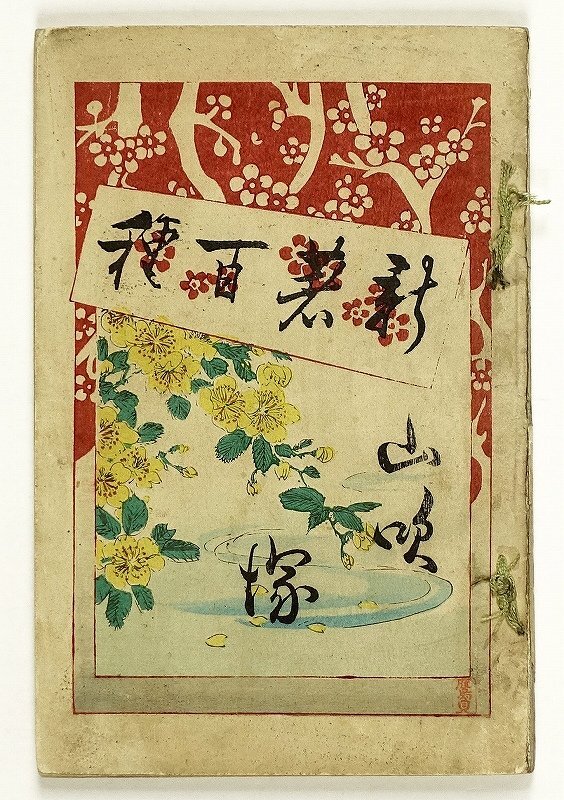 新著百種
山吹塚